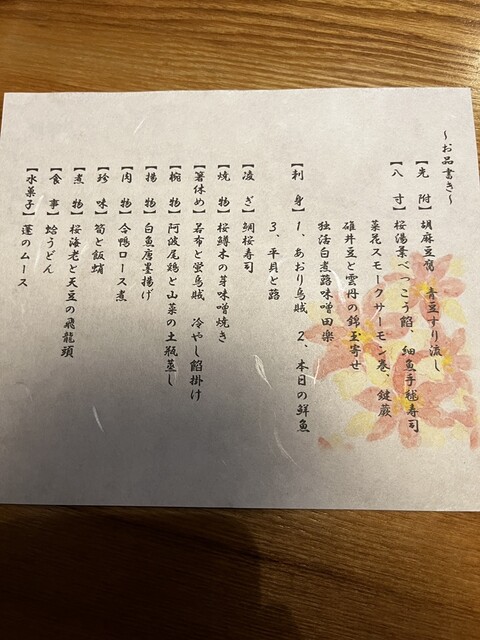 ~お品書き~
【先　附】胡麻豆腐　青豆すり流し
【八　寸】桜湯葉べっこう餡、細魚手毬寿司
菜花スモークサーモン巻、鍵蕨
碓井豆と雲丹の錦玉寄せ
独活白煮蕗味噌田楽
【刺　身】1、あおり烏賊　2、本日の鮮魚
3、平貝と蕗
【凌　ぎ】鯛桜寿司
【焼　物】桜鱒木の芽味噌焼き
【箸休め】若布と蛍烏賊　冷やし餡掛け
【椀　物】阿波尾鶏と山菜の土瓶蒸し
【揚　物】白魚唐墨揚げ
【肉　物】合鴨ロース煮
【珍　味】筍と飯蛸
【煮　物】桜海老と天豆の飛龍頭
【食　事】蛤うどん
【水菓子】蓬のムース